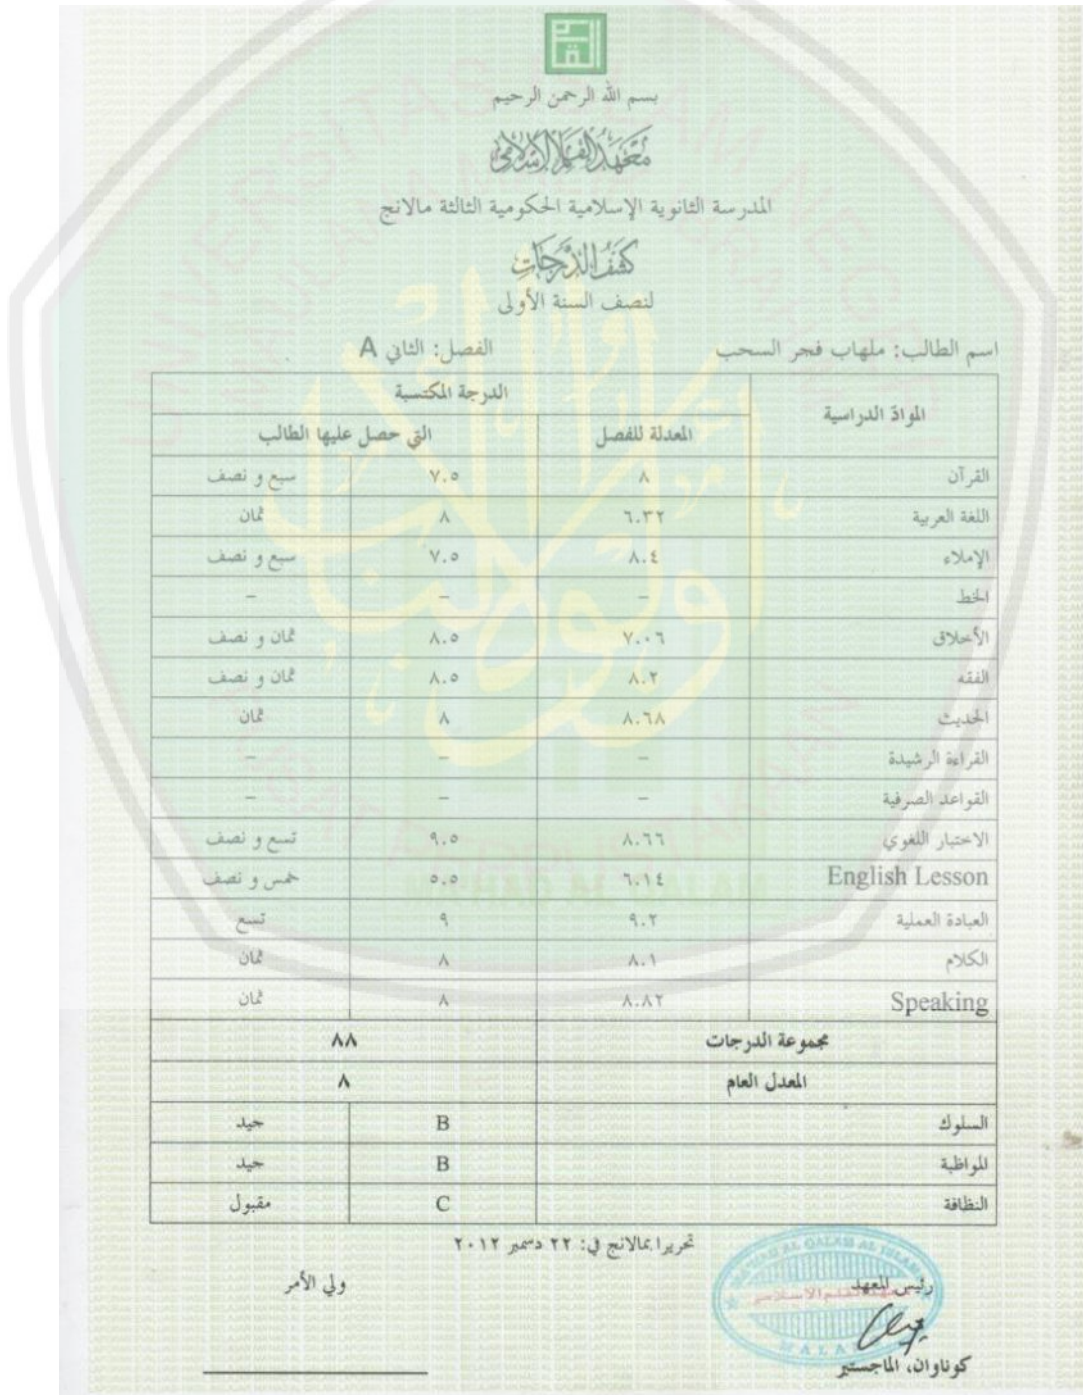 بسم الله الرحمن الرحيم
معهد القلم الإسلامي
المدرسة الثانوية الإسلامية الحكومية الثالثة مالانج
كشف الدرجات
لنصف السنة الأولى
اسم الطالب: ملهاب فجر السحب الفصل: الثاني A
الموادّ الدراسية الدرجة المكتسبة
المعدلة للفصل التي حصل عليها الطالب
القرآن ٨ ٧.٥ سبع و نصف
اللغة العربية ٦.٣٢ ٨ ثمان
الإملاء ٨.٤ ٧.٥ سبع و نصف
الخط – – –
الأخلاق ٧.٠٦ ٨.٥ ثمان و نصف
الفقه ٨.٢ ٨.٥ ثمان و نصف
الحديث ٨.٦٨ ٨ ثمان
القراءة الرشيدة – – –
القواعد الصرفية – – –
الاختبار اللغوي ٨.٦٦ ٩.٥ تسع و نصف
English Lesson ٦.١٤ ٥.٥ خمس و نصف
العبادة العملية ٩.٢ ٩ تسع
الكلام ٨.١ ٨ ثمان
Speaking ٨.٨٢ ٨ ثمان
مجموعة الدرجات ٨٨
المعدل العام ٨
السلوك B جيد
المواظبة B جيد
النظافة C مقبول
تحريرا بمالانج في: ٢٢ دسمبر ٢٠١٢
رئيس المعهد ولي الأمر
كوناوان، الماجستير